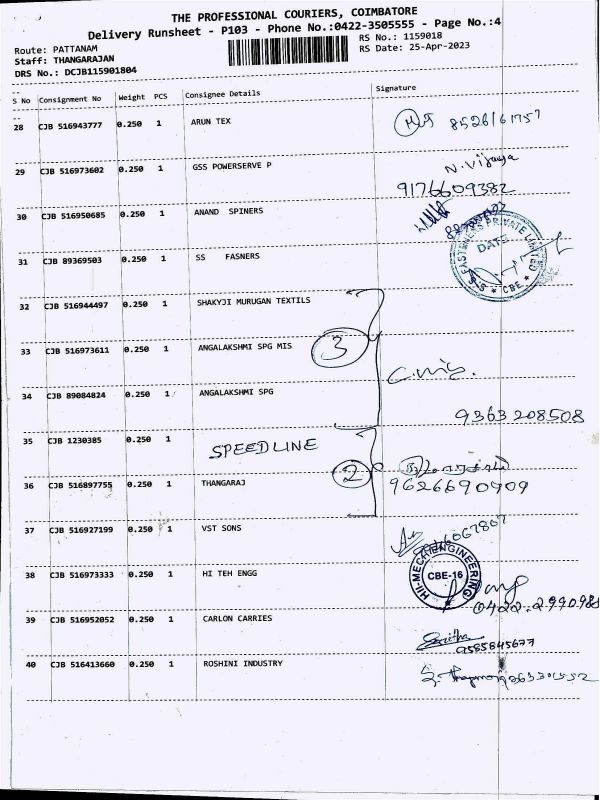 THE PROFESSIONAL COURIERS, COIMBATORE
Delivery Runsheet - P103 - Phone No.:0422-3505555 - Page No.:4
Route: PATTANAM
RS No.: 1159018
Staff: THANGARAJAN
RS Date: 25-Apr-2023
DRS No.: DCJB115901804
S No Consignment No Weight PCS Consignee Details Signature
28 CJB 516943777 0.250 1 ARUN TEX
29 CJB 516973602 0.250 1 GSS POWERSERVE P N. Vijaya
9176609382
30 CJB 516950685 0.250 1 ANAND SPINERS
31 CJB 89369503 0.250 1 SS FASNERS
FASTENERS PRIVATE LIMITED
DATE
CBE
32 CJB 516944497 0.250 1 SHAKYJI MURUGAN TEXTILS
33 CJB 516973611 0.250 1 ANGALAKSHMI SPG MIS 3
34 CJB 89084824 0.250 1 ANGALAKSHMI SPG
9363208508
35 CJB 1230385 0.250 1 SPEEDLINE
2
36 CJB 516897755 0.250 1 THANGARAJ 9626690909
37 CJB 516927199 0.250 1 VST SONS
38 CJB 516973333 0.250 1 HI TEH ENGG
HII-MECH ENGINEERING
CBE-16
39 CJB 516952052 0.250 1 CARLON CARRIES
9585845677
40 CJB 516413660 0.250 1 ROSHINI INDUSTRY